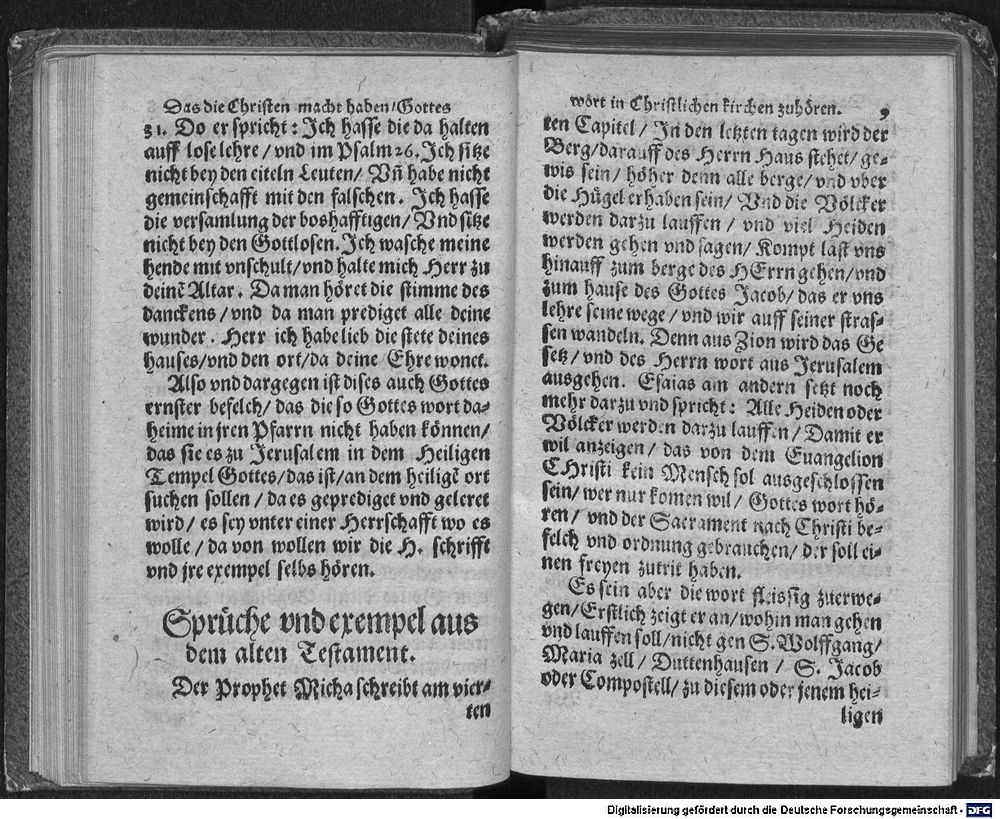 Das die Christen macht haben/Gottes
31. Do er spricht: Ich hasse die da halten
auff lose lehre/vnd im Psalm 26. Ich sitze
nicht bey den eiteln Leuten/ Vñ habe nicht
gemeinschafft mit den falschen. Ich hasse
die versamlung der boshafftigen/Vnd sitze
nicht bey den Gottlosen. Ich wasche meine
hende mit vnschult/vnd halte mich Herr zu
deinẽ Altar. Da man höret die stimme des
danckens/vnd da man prediget alle deine
wunder. Herr ich habe lieb die stete deines
hauses/vnd den ort/da deine Ehre wonet.
Also vnd dargegen ist dises auch Gottes
ernster befelch/ das die so Gottes wort da=
heime in jren Pfarrn nicht haben können/
das sie es zu Jerusalem in dem Heiligen
Tempel Gottes/das ist/an dem heiligẽ ort
suchen sollen/da es geprediget vnd geleret
wird/ es sey vnter einer Herrschafft wo es
wolle/da von wollen wir die H. schrifft
vnd jre exempel selbs hören.
Sprüche vnd exempel aus
dem alten Testament.
Der Prophet Micha schreibt am vier=
ten
wort in Christlichen kirchen zuhören. 9
ten Capitel/ In den letzten tagen wird der
Berg/darauff des Herrn Haus stehet/ ge=
wis sein/ höher denn alle berge/ vnd vber
die Hügel erhaben sein/ Vnd die Völcker
werden darzu lauffen/ vnd viel Heiden
werden gehen vnd sagen/ Kompt last vns
hinauff zum berge des HErrn gehen/vnd
zum hause des Gottes Jacob/ das er vns
lehre seine wege/ vnd wir auff seiner stras=
sen wandeln. Denn aus Zion wird das Ge
setz/ vnd des Herrn wort aus Jerusalem
ausgehen. Esaias am andern setzt noch
mehr darzu vnd spricht: Alle Heiden oder
Völcker werden darzu lauffen/ Damit er
wil anzeigen/ das von dem Euangelion
CHristi kein Mensch sol ausgeschlossen
sein/ wer nur komen wil/ Gottes wort hö=
ren/ vnd der Sacrament nach Christi be=
felch vnd ordnung gebrauchen/ der soll ei=
nen freyen zutrit haben.
Es sein aber die wort fleissig zuerwe=
gen/Erstlich zeigt er an/wohin man gehen
vnd lauffen soll/nicht gen S. Wolffgang/
Maria zell/ Duttenhausen/ S. Jacob
oder Compostell/ zu diesem oder jenem hei=
ligen
Digitalisierung gefördert durch die Deutsche Forschungsgemeinschaft - DFG